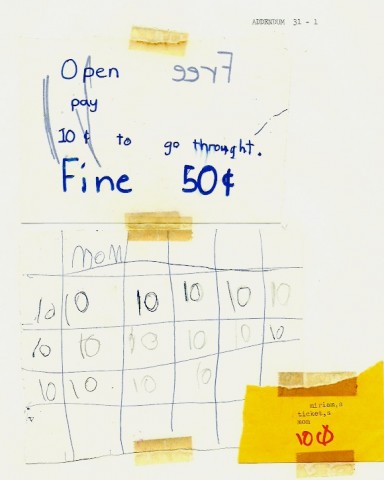 ADDENDUM 31 - 1
Open Free
pay
10 ¢ to go throught.
Fine 50¢
mon
10 10 10 10 10 10
10 10 10 10 10 10
10 10 10 10
miriam,s
ticket,s
mon
10 ¢